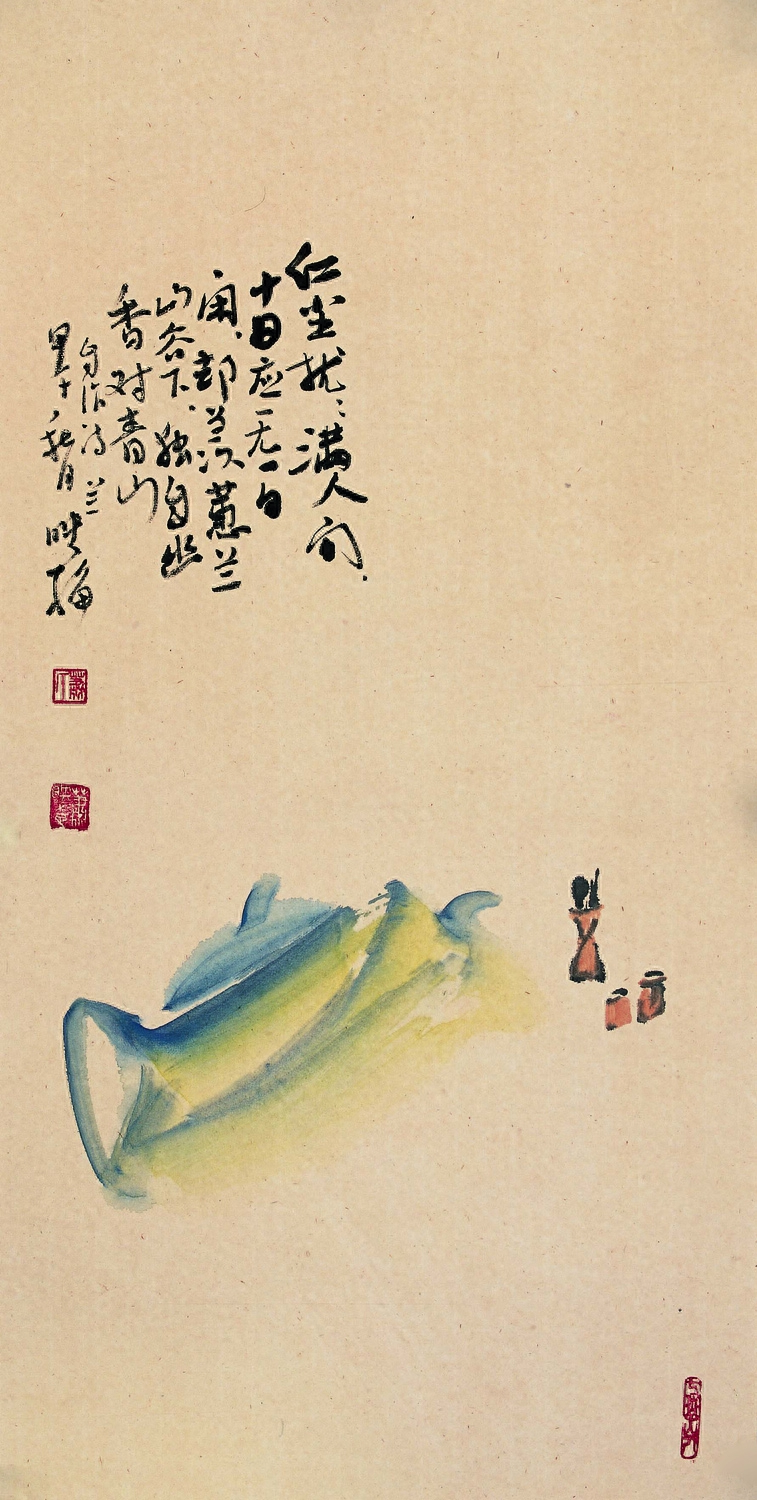 红尘扰扰满人间
十日应无一日
闲却羡蕙兰
山谷下独自幽
香对青山
自作诗
秋月映梅